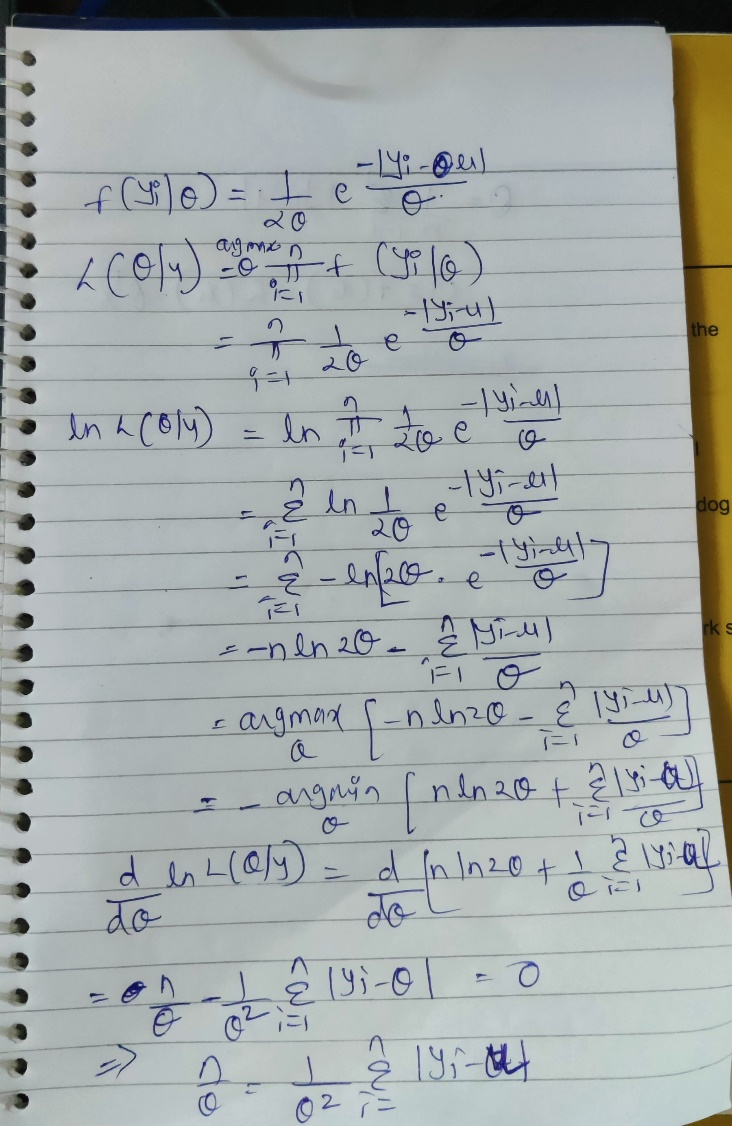 f(yi|θ) = 1/2θ e^{-|yi-θμ|/θ}
L(θ|y) = argmax θ ∏_{i=1}^{n} f(yi|θ)
= ∏_{i=1}^{n} 1/2θ e^{-|yi-μ|/θ}
ln L(θ|y) = ln ∏_{i=1}^{n} 1/2θ e^{-|yi-μ|/θ}
= Σ_{i=1}^{n} ln 1/2θ e^{-|yi-μ|/θ}
= Σ_{i=1}^{n} -ln[2θ. e^{-|yi-μ|/θ}]
= -n ln 2θ - Σ_{i=1}^{n} |yi-μ|/θ
= argmax_θ [-n ln 2θ - Σ_{i=1}^{n} |yi-μ|/θ]
= - argmin_θ [n ln 2θ + Σ_{i=1}^{n} |yi-θ|/θ]
d/dθ ln L(θ|y) = d/dθ [n ln 2θ + 1/θ Σ_{i=1}^{n} |yi-θ|]
= n/θ - 1/θ² Σ_{i=1}^{n} |yi-θ| = 0
⇒ n/θ = 1/θ² Σ_{i=}^{n} |yi-μ|
the
dog
rk s